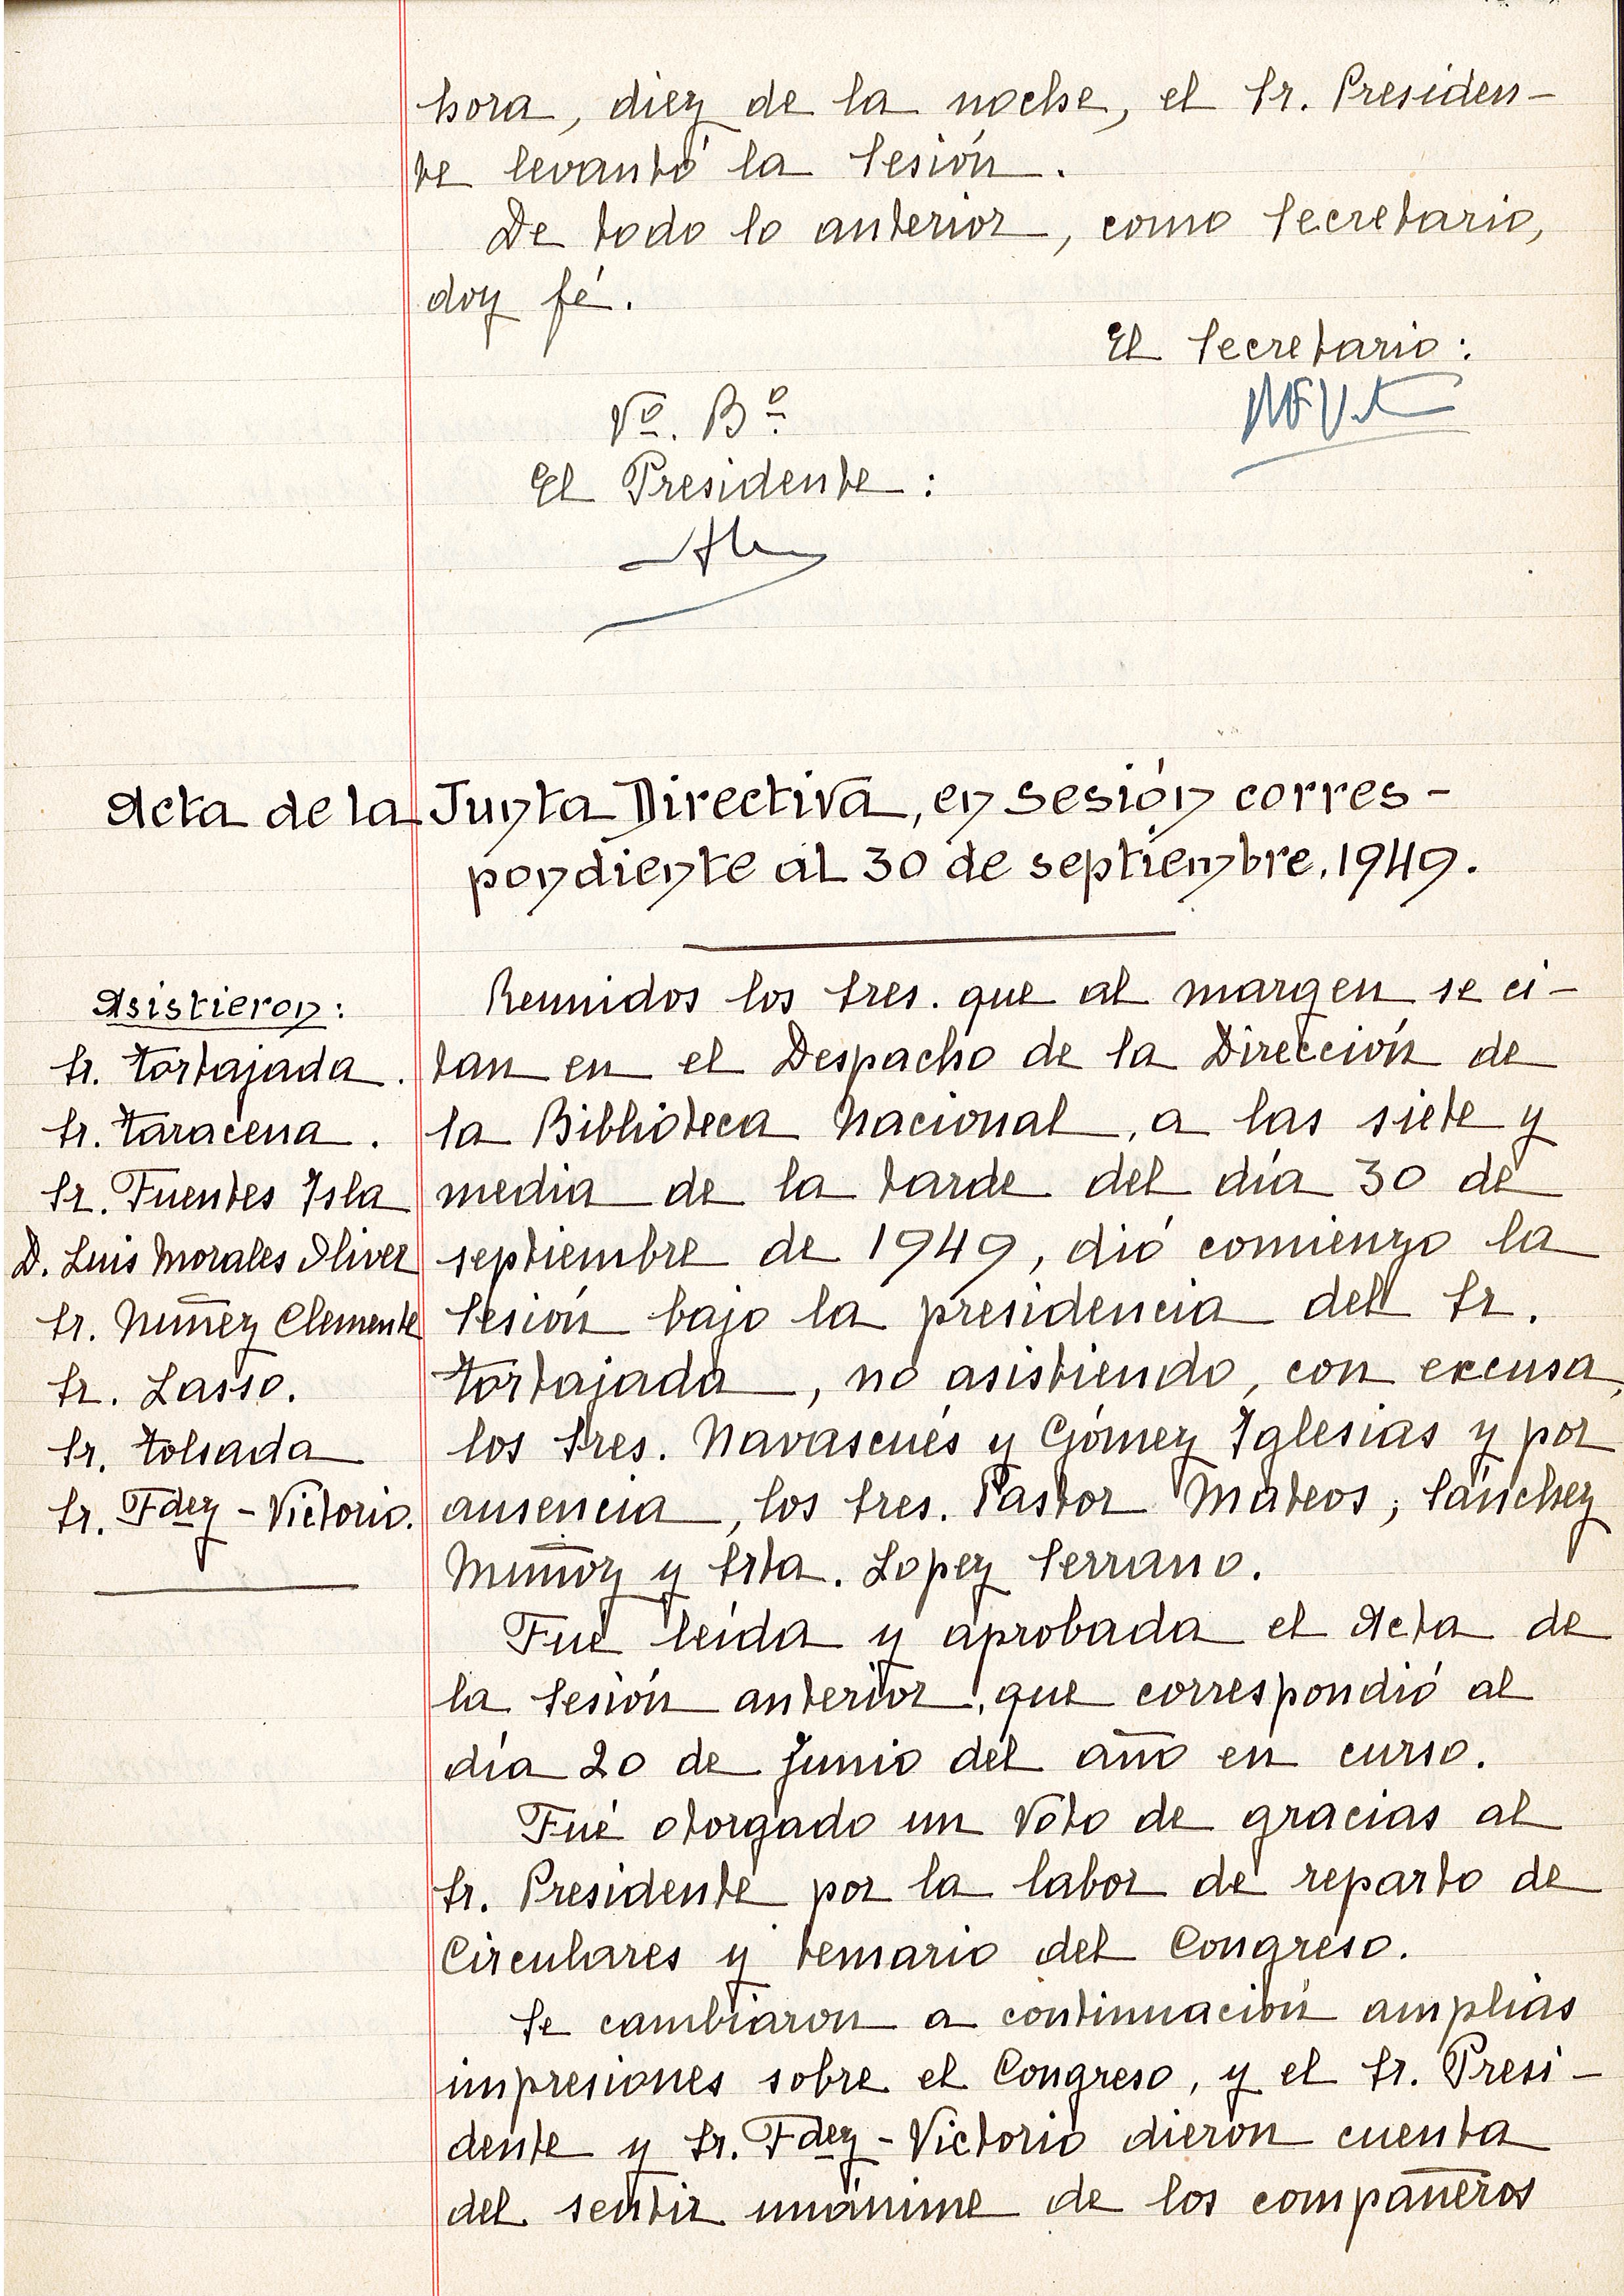 hora, diez de la noche, el Sr. Presiden-
te levantó la Sesión.
De todo lo anterior, como Secretario,
doy fé.
El Secretario:
Vº. Bº.
El Presidente:
Acta de la Junta Directiva, en sesión corres-
pondiente al 30 de septiembre, 1949.
Asistieron:
Sr. Tortajada.
Sr. Taracena.
Sr. Fuentes Isla
D. Luis Morales Oliver
Sr. Nuñez Clemente
Sr. Lasso.
Sr. Tolsada
Sr. Fdez-Victorio.
Reunidos los Sres. que al margen se ci-
tan en el Despacho de la Dirección de
la Biblioteca Nacional, a las siete y
media de la tarde del día 30 de
septiembre de 1949, dió comienzo la
Sesión bajo la presidencia del Sr.
Tortajada, no asistiendo, con excusa,
los Sres. Navascués y Gómez Iglesias y por
ausencia, los Sres. Pastor Mateos, Sánchez
Muñoz y Srta. Lopez Serrano.
Fué leída y aprobada el Acta de
la Sesión anterior, que correspondió al
día 20 de Junio del año en curso.
Fué otorgado un Voto de gracias al
Sr. Presidente por la labor de reparto de
Circulares y temario del Congreso.
Se cambiaron a continuación amplias
impresiones sobre el Congreso, y el Sr. Presi-
dente y Sr. Fdez-Victorio dieron cuenta
del sentir unánime de los compañeros